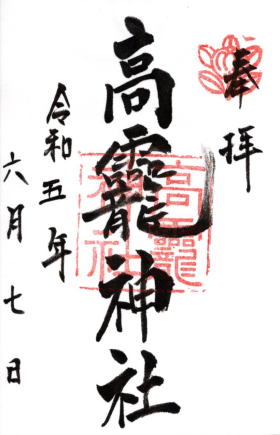 奉拝
高龗神社
令和五年
六月七日
高龗
神社